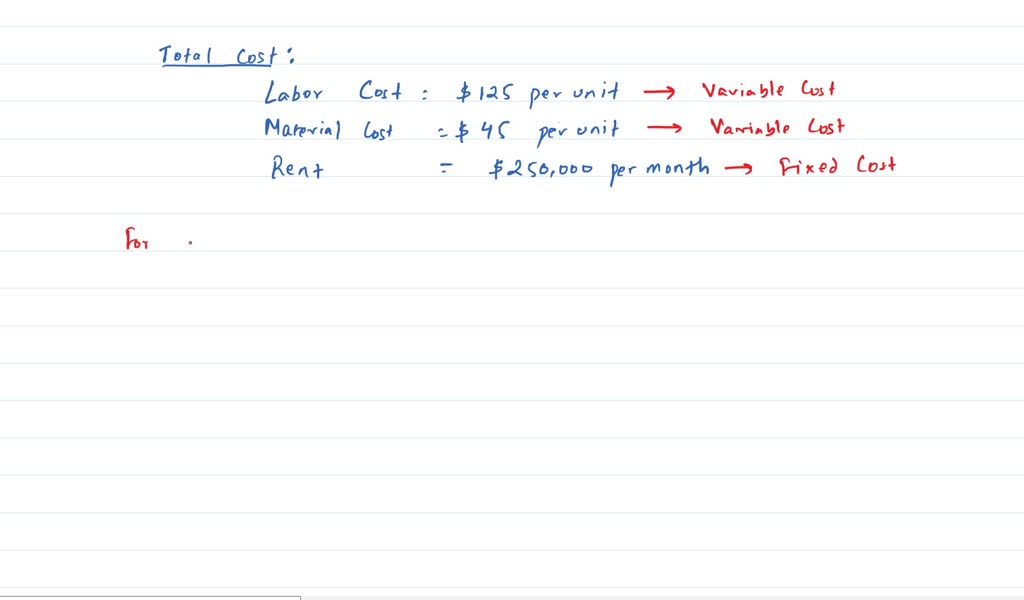 Total Cost:
Labor Cost = $125 per unit → Variable Cost
Material Cost = $45 per unit → Variable Cost
Rent = $250,000 per month → Fixed Cost
For